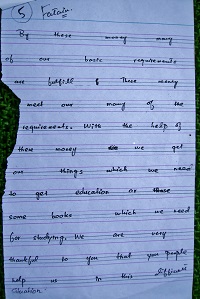 5 Fatain.
By these money many
of our basic requirements
are fulfill & These money
meet our many of the
requirements. With the help of
these money we get
our things which we need
to get education or
some books which we need
for studying. We are very
thankful to you that you people
help us in this difficult
situation.